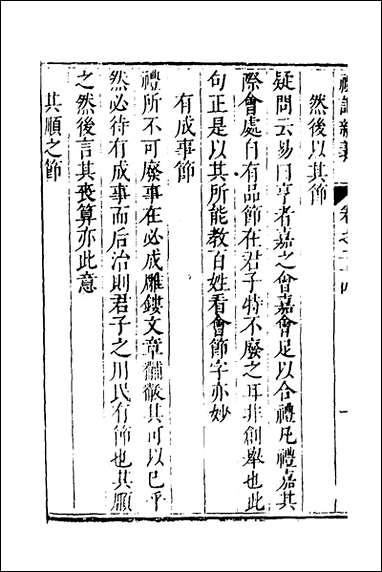 禮記新義
卷之二十四
一
然後以其節
疑問云易曰亨者嘉之會嘉會足以合禮凡禮嘉其
際會處自有品節在君子特不廢之耳非創舉也此
句正是以其所能教百姓看會節字亦妙
有成事節
禮所不可廢事在必成雕鏤文章黼黻其可以已乎
然必待有成事而后治則君子之用民有節也其順
之然後言其喪算亦此意
其順之節